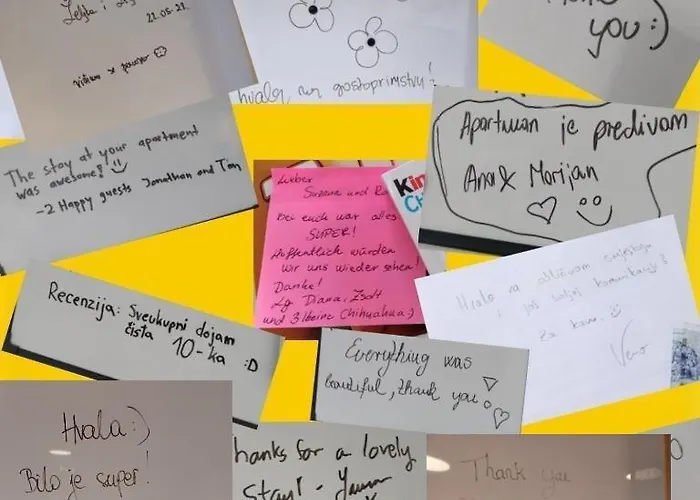 21.05.21.
Vidimo se ponovo
hvala, na gostoprimstvu!
you:)
The stay at your apartment
was awesome!
-2 Happy guests Jonathan and Tom
Lieber
Suzana und
Bei euch war alles
SUPER!
Hoffentlich würden
wir uns wieder sehen!
Danke!
Lg Diana, Zsolt
und 3 kleine Chihuahua:)
Kin
Apartman je predivan
Ana & Marijan
Hvala na odličnom smještaju
i još boljoj komunikaciji
Za kavu.
Recenzija: Sveukupni dojam
čista 10-ka :D
Everything was
beautiful, thank you
Hvala:)
Bilo je super!
hanks for a lovely
Stay! -
Thank you